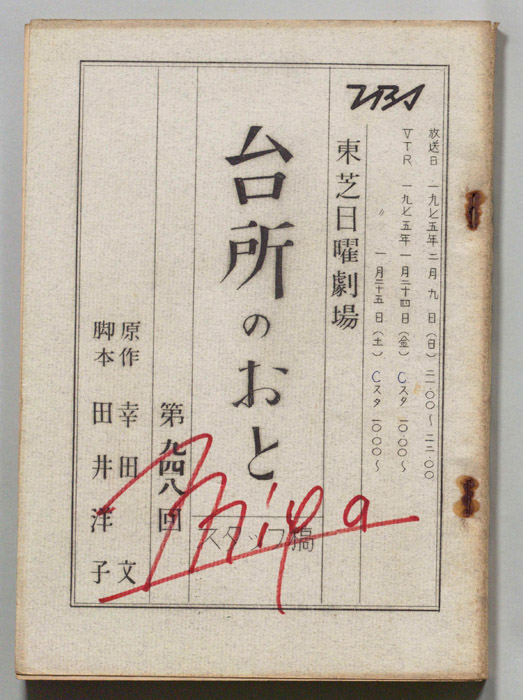 TBS
放送日 一九七五年二月九日(日)二一.〇〇〜二二.〇〇
VTR 一九七五年一月二十四日(金)Cスタ 一〇.〇〇〜
〃 一月二十五日(土)Cスタ 一〇.〇〇〜
東芝日曜劇場
台所のおと
スタッフ稿
第九四八回
原作 幸田文
脚本 田井洋子